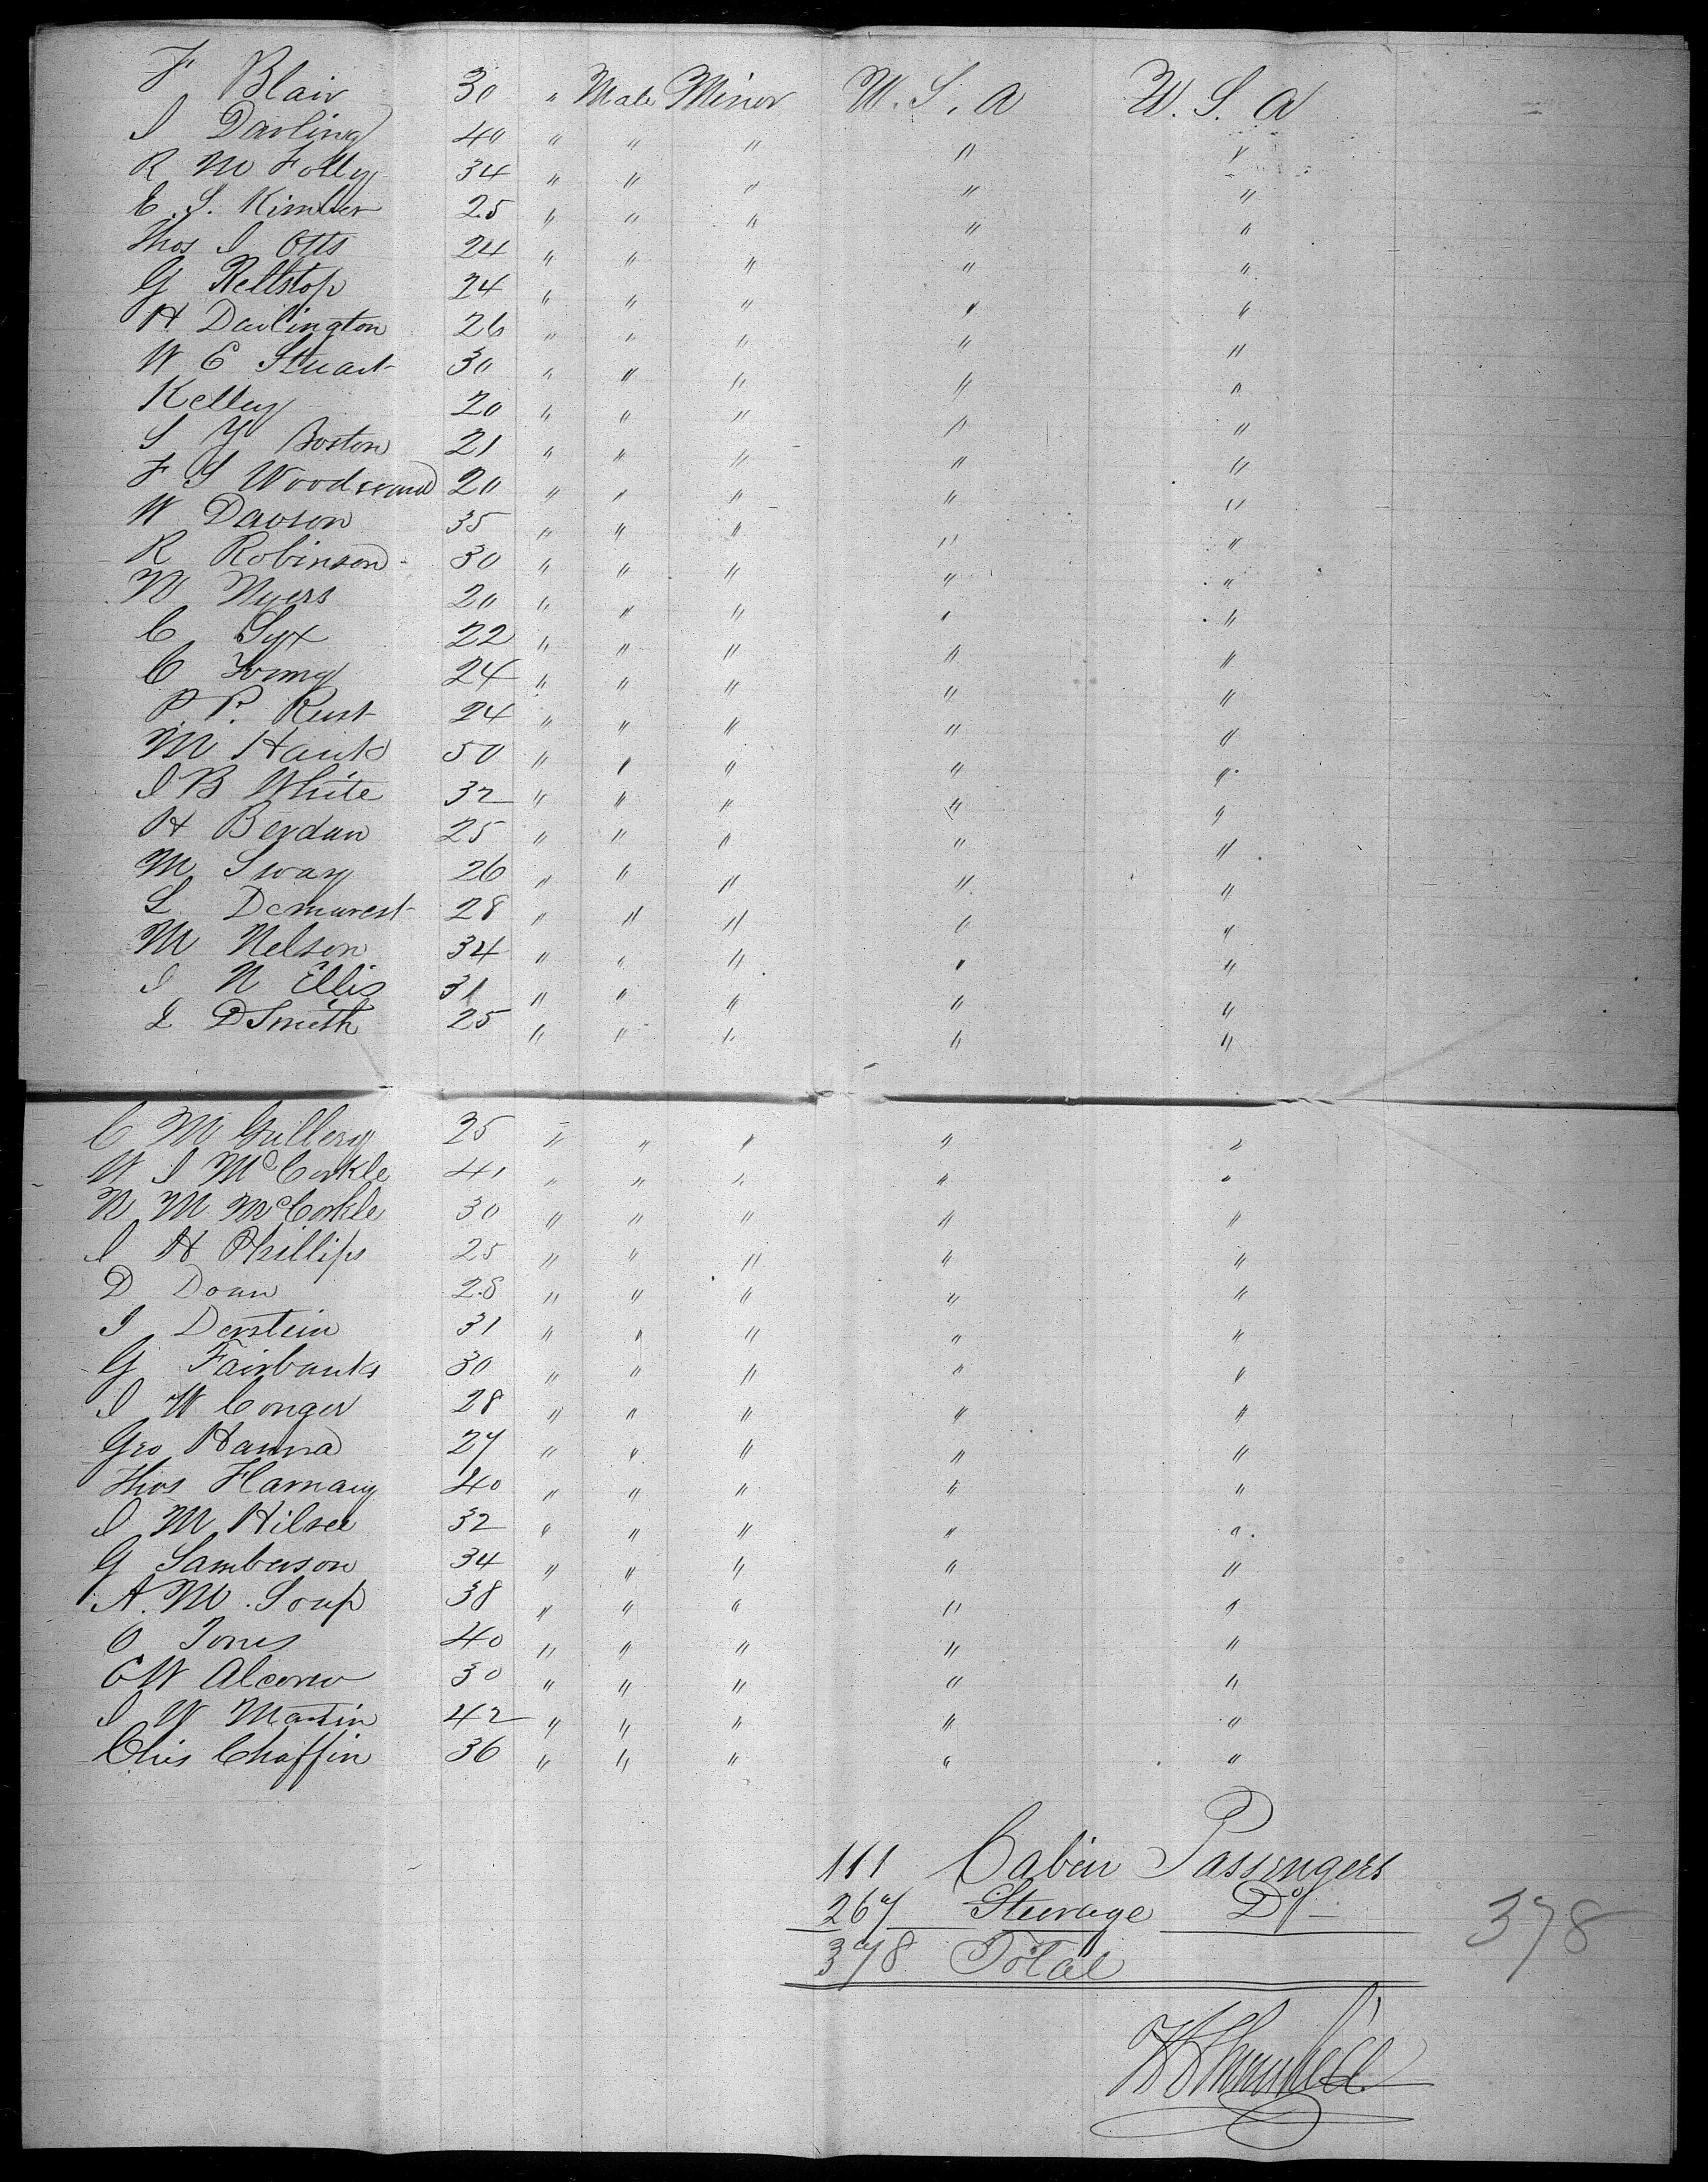 F Blair 30 " Male Miner U. S. A U. S. A
J Darling 40 " " " " "
R M Folly 34 " " " " "
E. S. Kimber 25 " " " " "
Thos J Otts 24 " " " " "
G Rellstop 24 " " " " "
H Darlington 26 " " " " "
W E Stuart 30 " " " " "
Kelley 20 " " " " "
S Y Boston 21 " " " " "
F S Woodward 20 " " " " "
W Dawson 35 " " " " "
R Robinson 30 " " " " "
W Myers 20 " " " " "
C Syx 22 " " " " "
C Young 24 " " " " "
P. P. Rust 24 " " " " "
M Hauk 50 " " " " "
J B White 32 " " " " "
H Berdan 25 " " " " "
M Sway 26 " " " " "
L Demarest 28 " " " " "
M Nelson 34 " " " " "
J N Ellis 31 " " " " "
L D Smith 25 " " " " "
C M Gillery 25 " " " " "
W J McCorkle 41 " " " " "
N M McCorkle 30 " " " " "
J H Phillips 25 " " " " "
D Doan 28 " " " " "
J Derstein 31 " " " " "
G Fairbanks 30 " " " " "
J W Conger 28 " " " " "
Geo Hanna 27 " " " " "
Thos Flamary 40 " " " " "
J M Hilsee 32 " " " " "
G Lamberson 34 " " " " "
A. M. Soup 38 " " " " "
C Jones 40 " " " " "
C W Alcorn 30 " " " " "
J W Martin 42 " " " " "
Chis Chaffin 36 " " " " "
111 Cabin Passengers
267 Steerage Do
378 Total
378